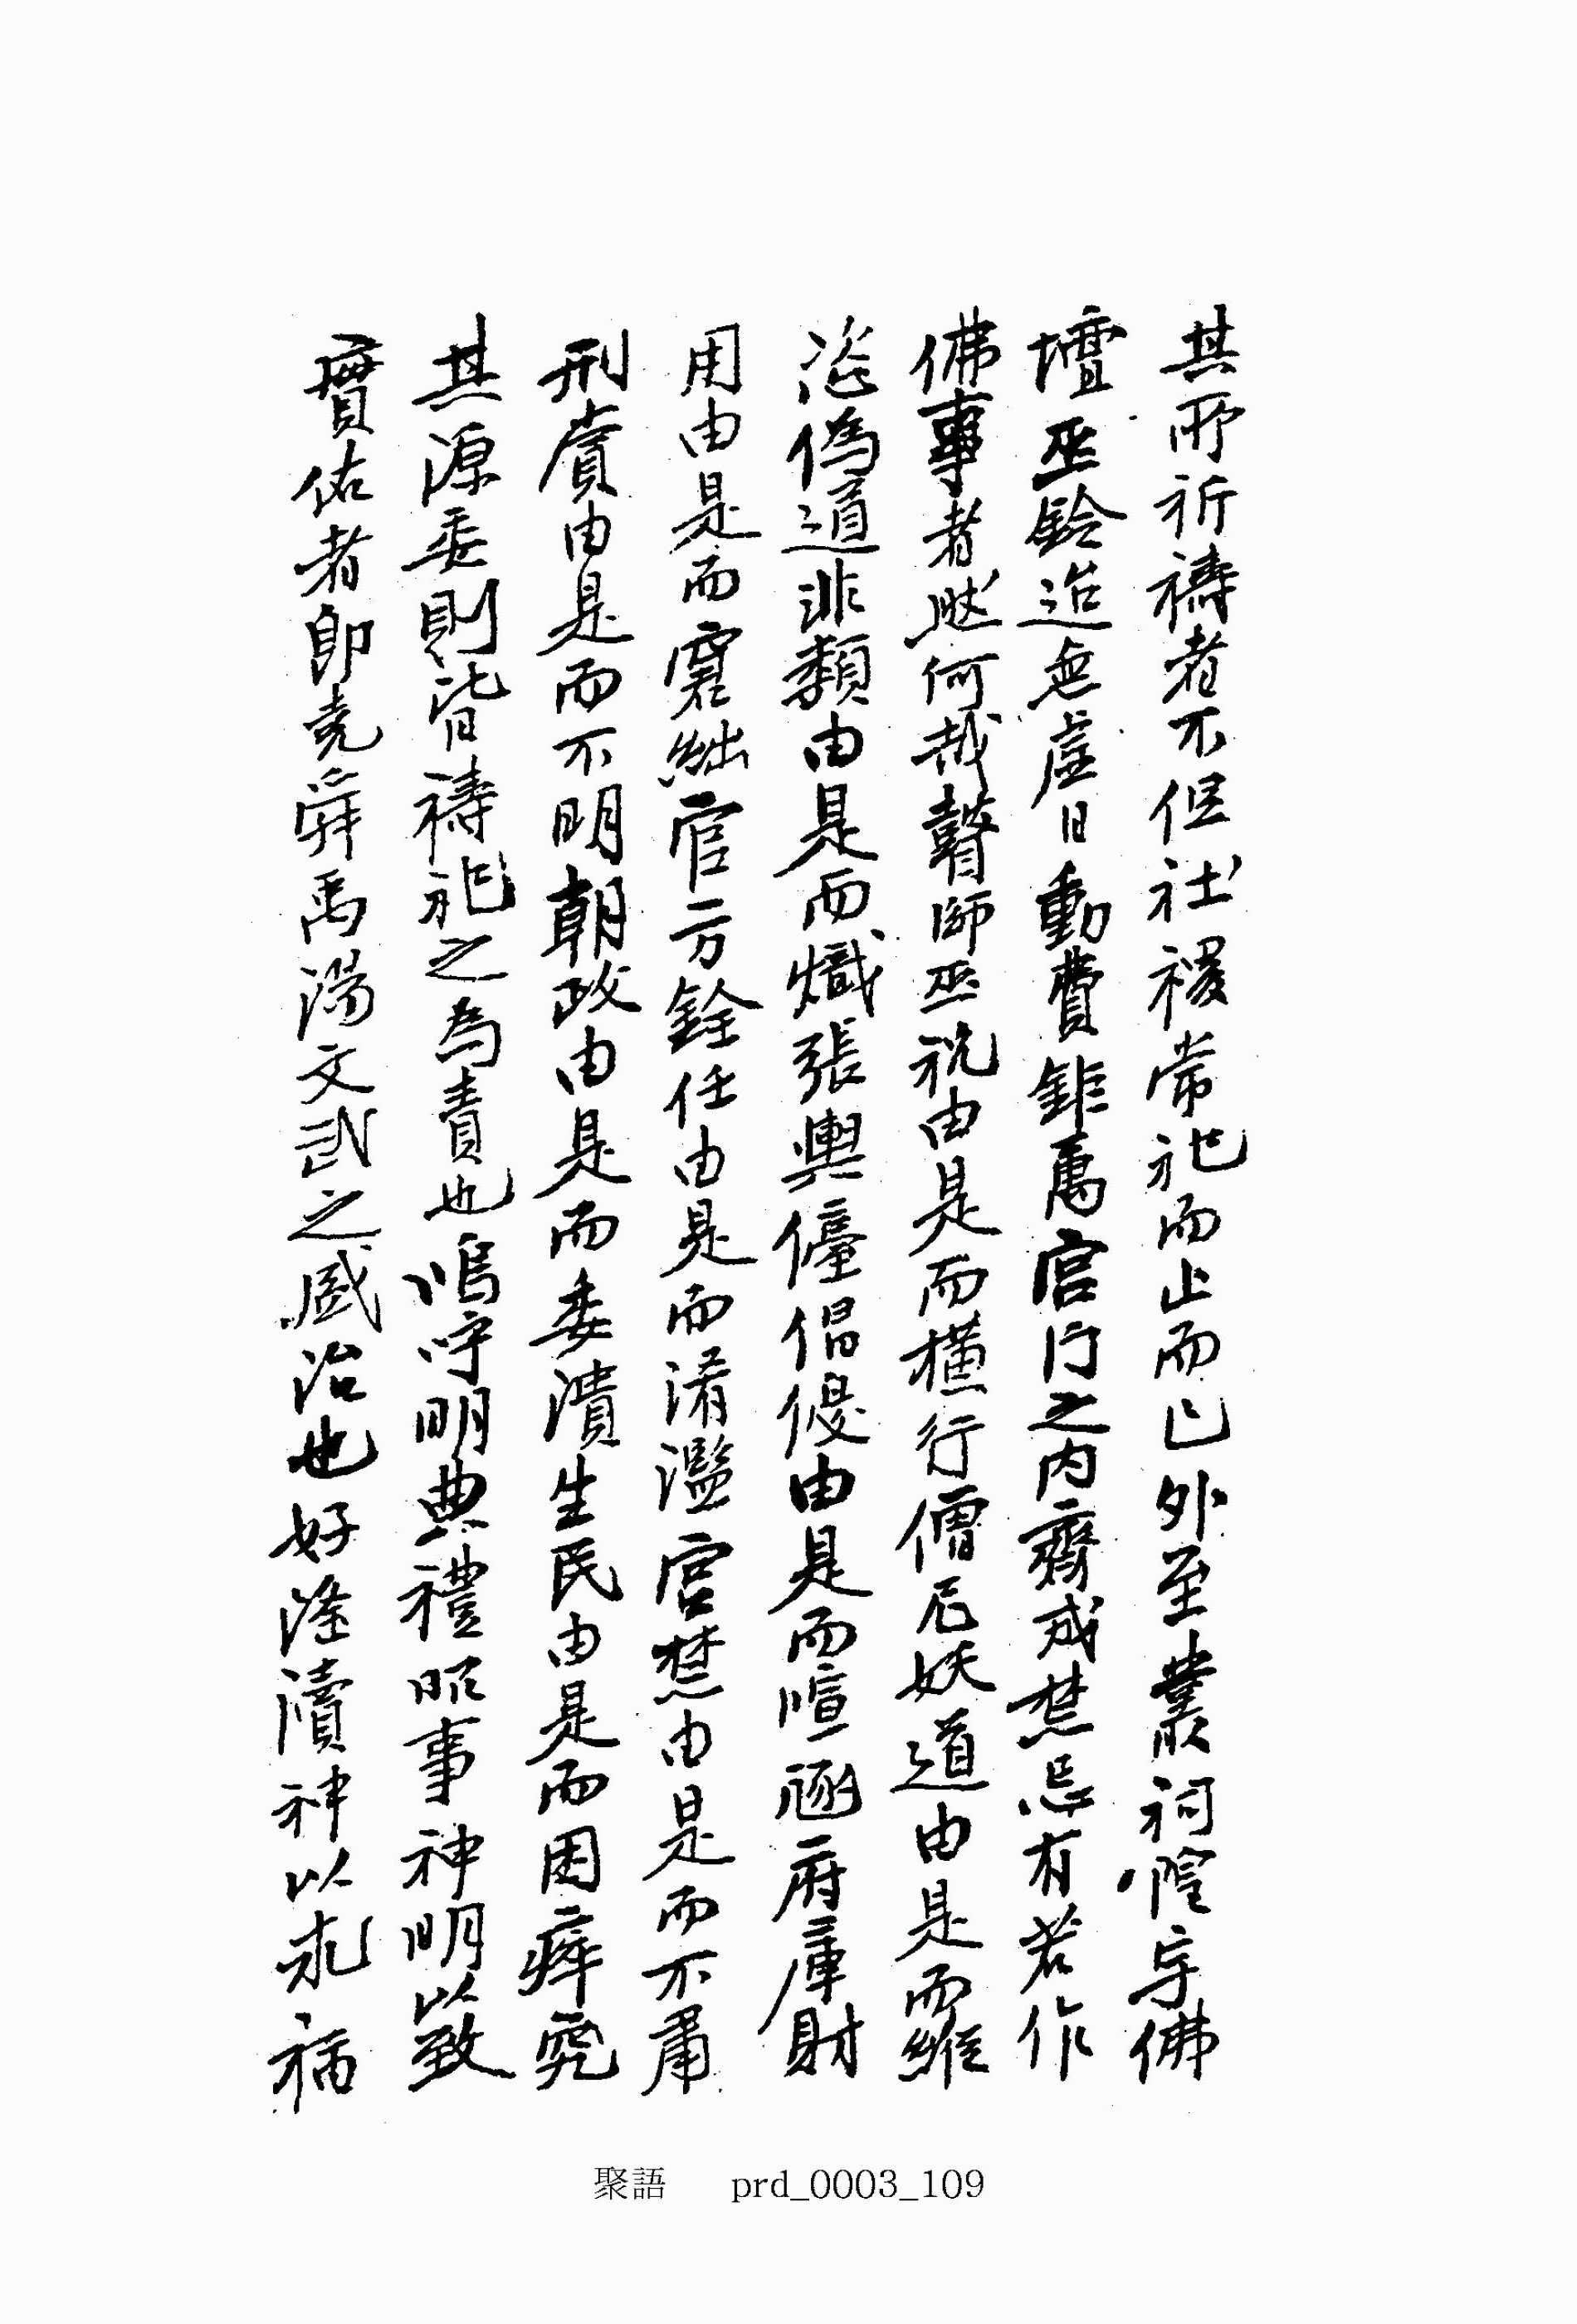 其所祈禱者不但社稷常祀而止而已外至叢祠隍宇佛
壇巫鈴迨無虛日動費鉅萬宮行之內齋戒禁忌有若作
佛事者然何哉瞽師巫祝由是而橫行僧尼妖道由是而縱
恣偽道非類由是而熾張輿儓倡優由是而喧逐府庫財
用由是而窘絀官方銓任由是而淆濫宮禁由是而不肅
刑賞由是而不明朝政由是而委潰生民由是而困瘁究
其源委則皆禱祀之為責也嗚呼明典禮昭事神明以致
實佑者卽堯舜禹湯文武之盛治也好淫瀆神以求福
聚語 prd_0003_109